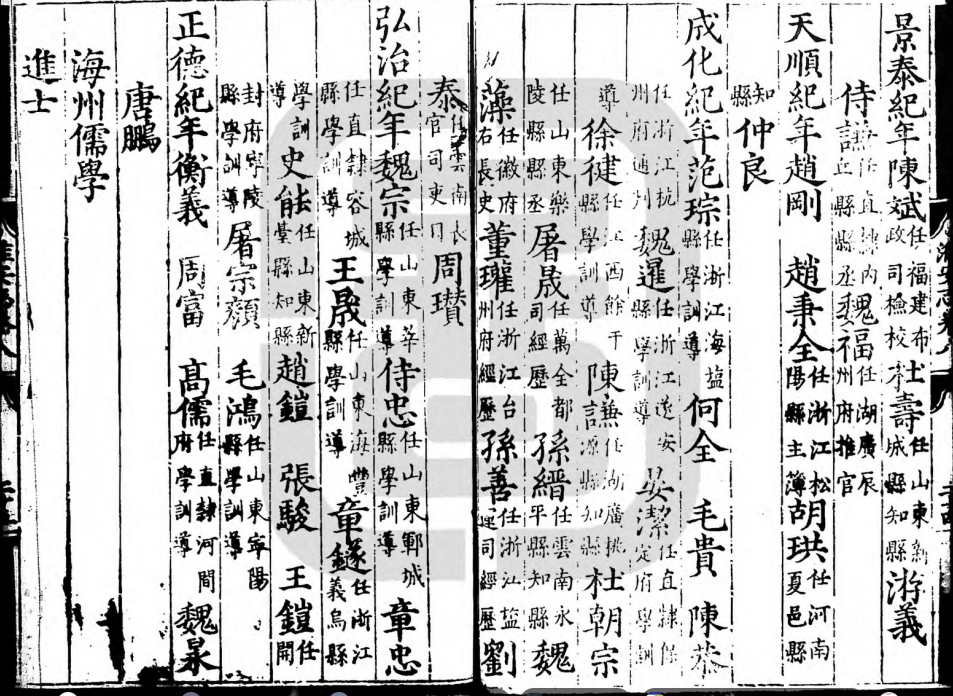 景泰紀年陳斌任福建布政司檢校李壽任山東新城縣知縣洐義
侍謙任直隸內丘縣縣丞魏福任湖廣辰州府推官
天順紀年趙剛 趙秉全任浙江松陽縣主簿胡珙任河南夏邑縣
知縣仲良
成化紀年范琮任浙江海鹽縣學訓導何全 毛貴 陳恭
任浙江杭州府通判魏暹任浙江遂安縣學訓導安潔任直隸保定府學訓
導徐健任江西餘干縣學訓導陳謙任湖廣桃源縣知縣杜朝宗
任山東樂陵縣縣丞屠晟任萬全都司經歷孫縉任雲南永平縣知縣魏
藻任徽府右長史董瓘任浙江台州府經歷孫善任浙江鹽運司經歷劉
泰任雲南長官司吏目周瓚
弘治紀年魏宗任山東莘縣學訓導侍忠任山東鄆城縣學訓導章忠
任直隸容城縣學訓導王晟任山東海豐縣學訓導章鐩任浙江義烏縣
學訓導史能任山東新臺縣知縣趙鎧 張駿 王鎧任開
封府寧陵縣學訓導屠宗顏 毛鴻任山東寧陽縣學訓導
正德紀年衡義 周富 高儒任直隸河間府學訓導魏杲
唐鵬
海州儒學
進士